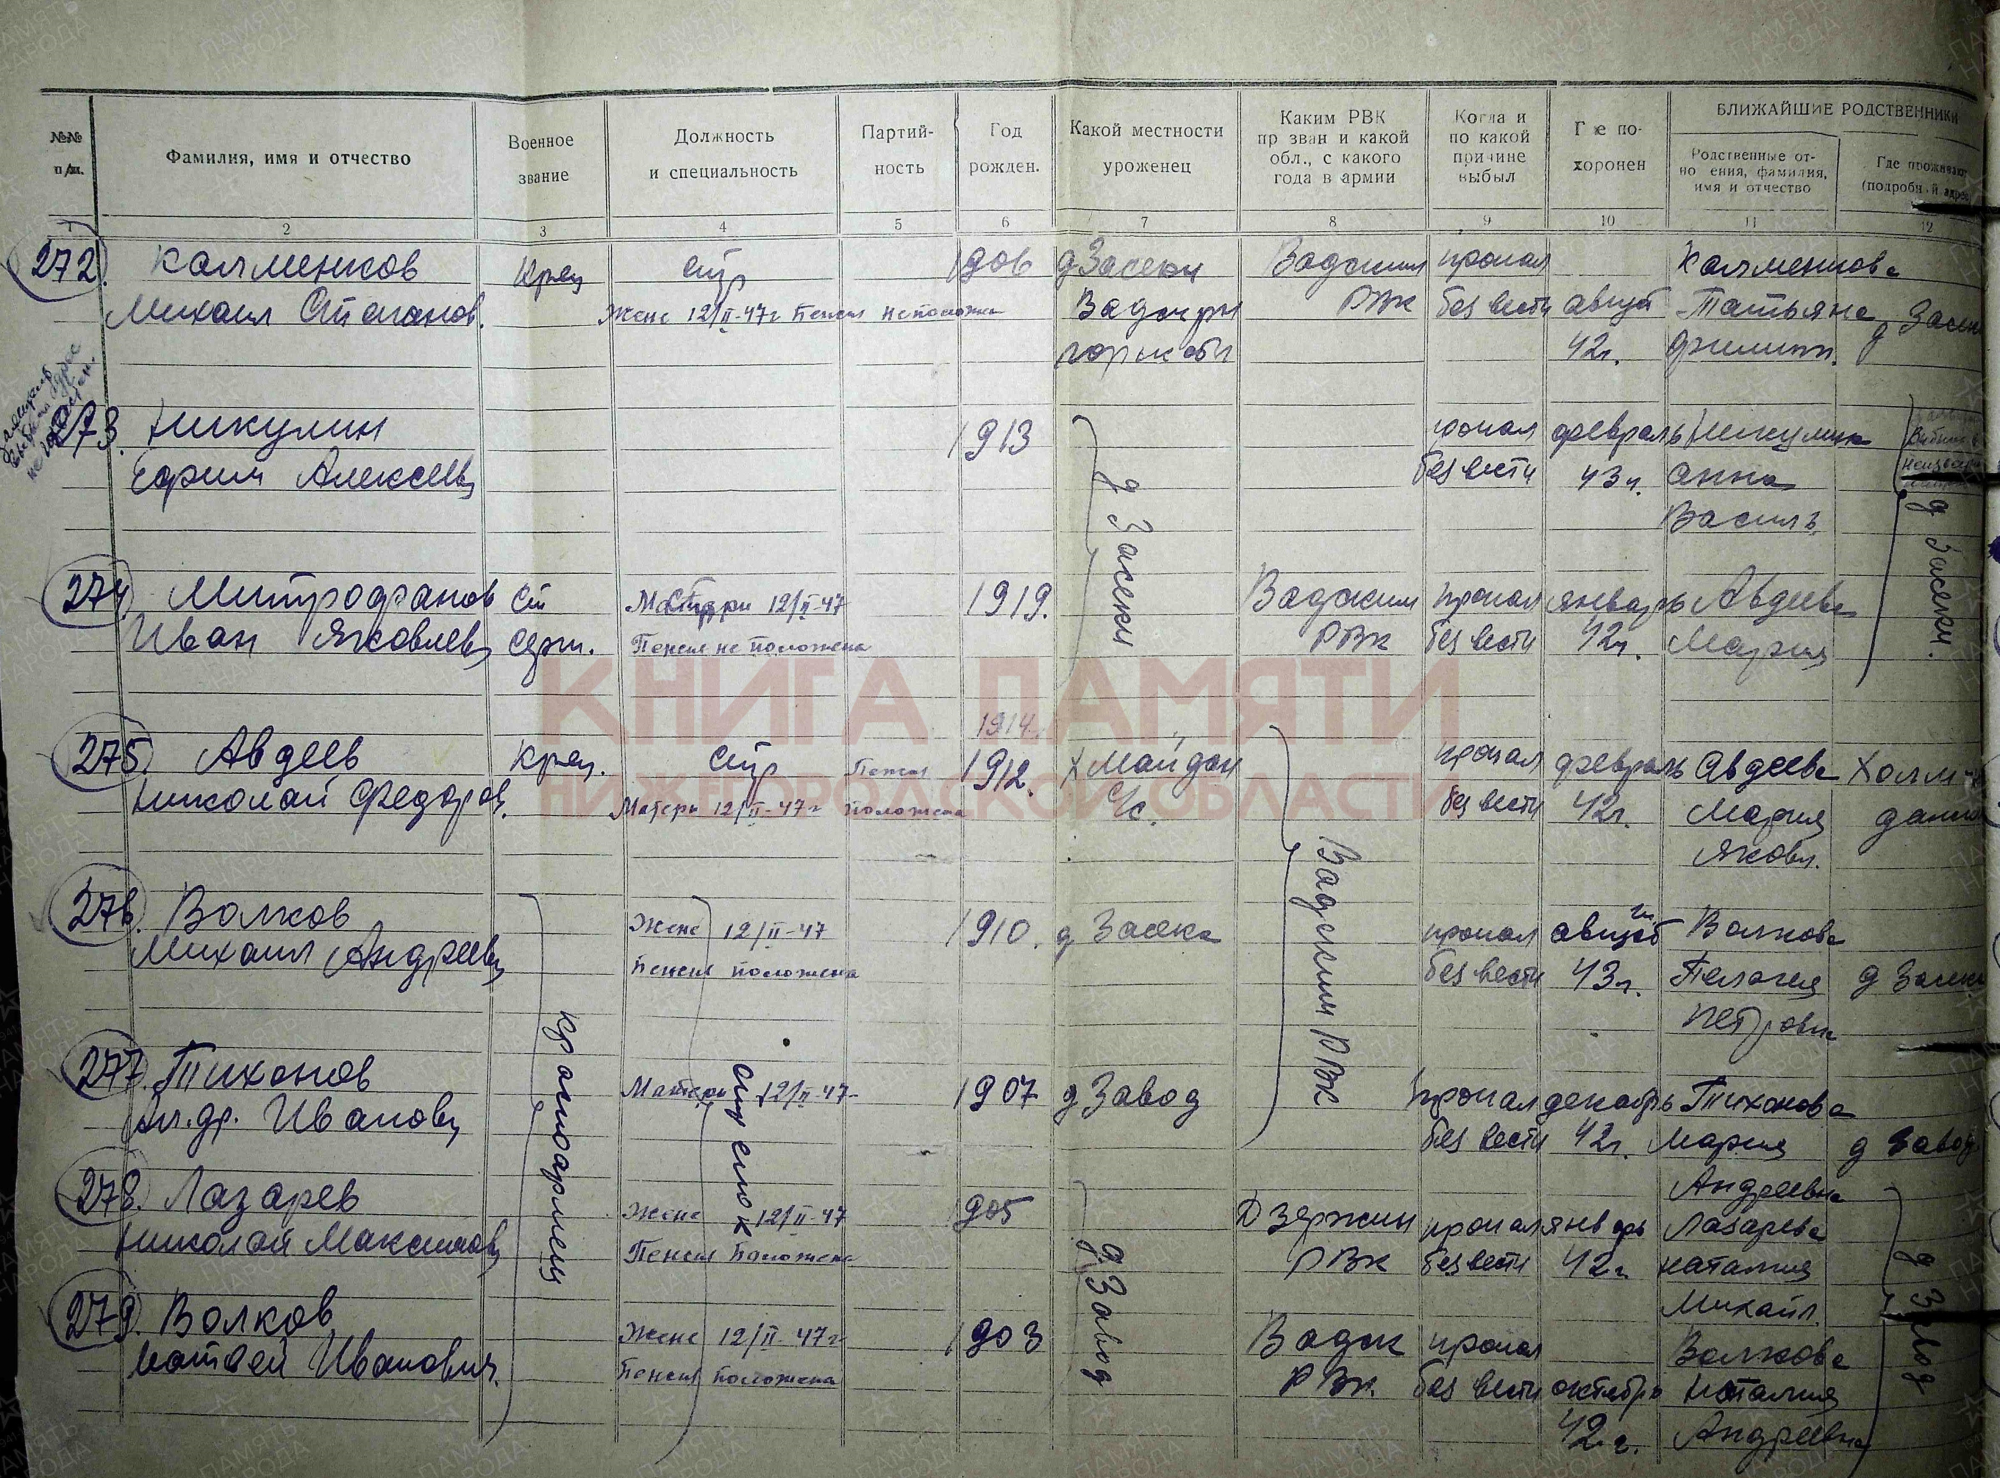 №№ п/п.
Фамилия, имя и отчество
Военное звание
Должность и специальность
Партий-ность
Год рожден.
Какой местности уроженец
Каким РВК пр зван и какой обл., с какого года в армии
Когда и по какой причине выбыл
Где по-хоронен
БЛИЖАЙШИЕ РОДСТВЕННИКИ
Родственные от-но ения, фамилия, имя и отчество
Где прожива
(подробный адре
1 2 3 4 5 6 7 8 9 10 11 12
272. Калменков Крец стр 1906 д Засеки Вадским пропал Калменкова
Михаил Степанов. Жене 12/II-47г Пенсия не положена РВК без вести август Татьяна д Засек
42г. Филипп.
273. Никулин 1913 пропал февраль Никулина
Ефрим Алексеев без вести 43г. Анна
д Засеки
Василь
д Засеки.
274. Митрофанов Ст Матери 12/II-47 1919. Вадским пропал январь Авдеева
Иван Яковлев серж. Пенсия не положена РВК без вести 42г. Мария
КНИГА ПАМЯТИ
НИЖЕГОРОДСКОЙ ОБЛАСТИ
1914
275. Авдеев Крец. стр Пенсия 1912. Х Майдан пропал февраль Авдеева
Николай Федоров. Матерь 12/II-47г положена С/с. без вести 42г. Мария
Яковл.
Вадским РВК
276. Волков Жене 12/II-47 1910. д Засека пропал август Волкова
Михаил Андреев Пенсия положена без вести 43г. Пелагея д Засек
Петровна
красноармеец
стрелок
277. Тихонов Матери 12/II-47 1907 д Завод пропал декабрь Тихонова
Ал.др. Иванов без вести 42г. Мария д Завод
Андреевна
278. Лазарев Жене 12/II-47 1905 Дзержин пропал январь Лазарева
Николай Максимов Пенсия положена РВК без вести 42г Наталия
Михайл.
д Завод
д Завод
279. Волков Жене 12/II-47г 1903 Вадск пропал Волкова
Матвей Иванович. Пенсия положена РВК. без вести октябрь Наталия
42г. Андреевна